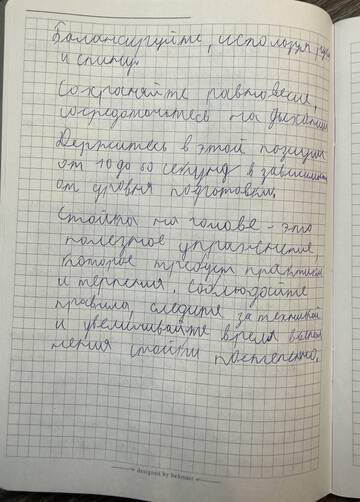 Балансируйте, используя руки
и спину.
Сохраняйте равновесие,
сосредоточьтесь на дыхании
Держитесь в этой позиции
от 10 до 60 секунд в зависимости
от уровня подготовки.
Стойка на голове - это
полезное упражнение,
которое требует практики
и терпения. Соблюдайте
правила, следите за техникой
и увеличивайте время выпол
нения стойки постепенно.
designed by beSmart